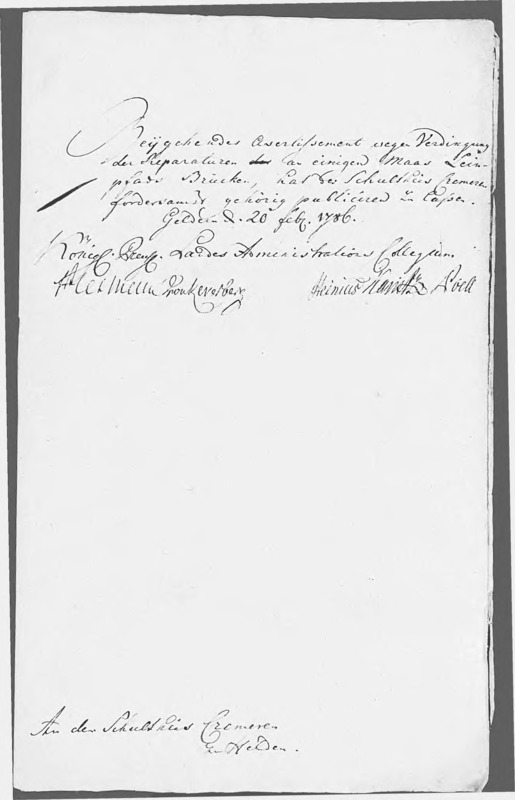 Beÿgehendes Avertissement wegen Verdingung
der Reparaturen an einigen Maas Lein-
pfads Brücken, hat der Schultheis Cremeren
fördersamst gehörig publiciren zu laßen.
Geldern d. 20 feb. 1786.
Königl. Preuß. Landes Administrations Collegium
Heinius
An den Schultheis Cremeren
zu Helden.